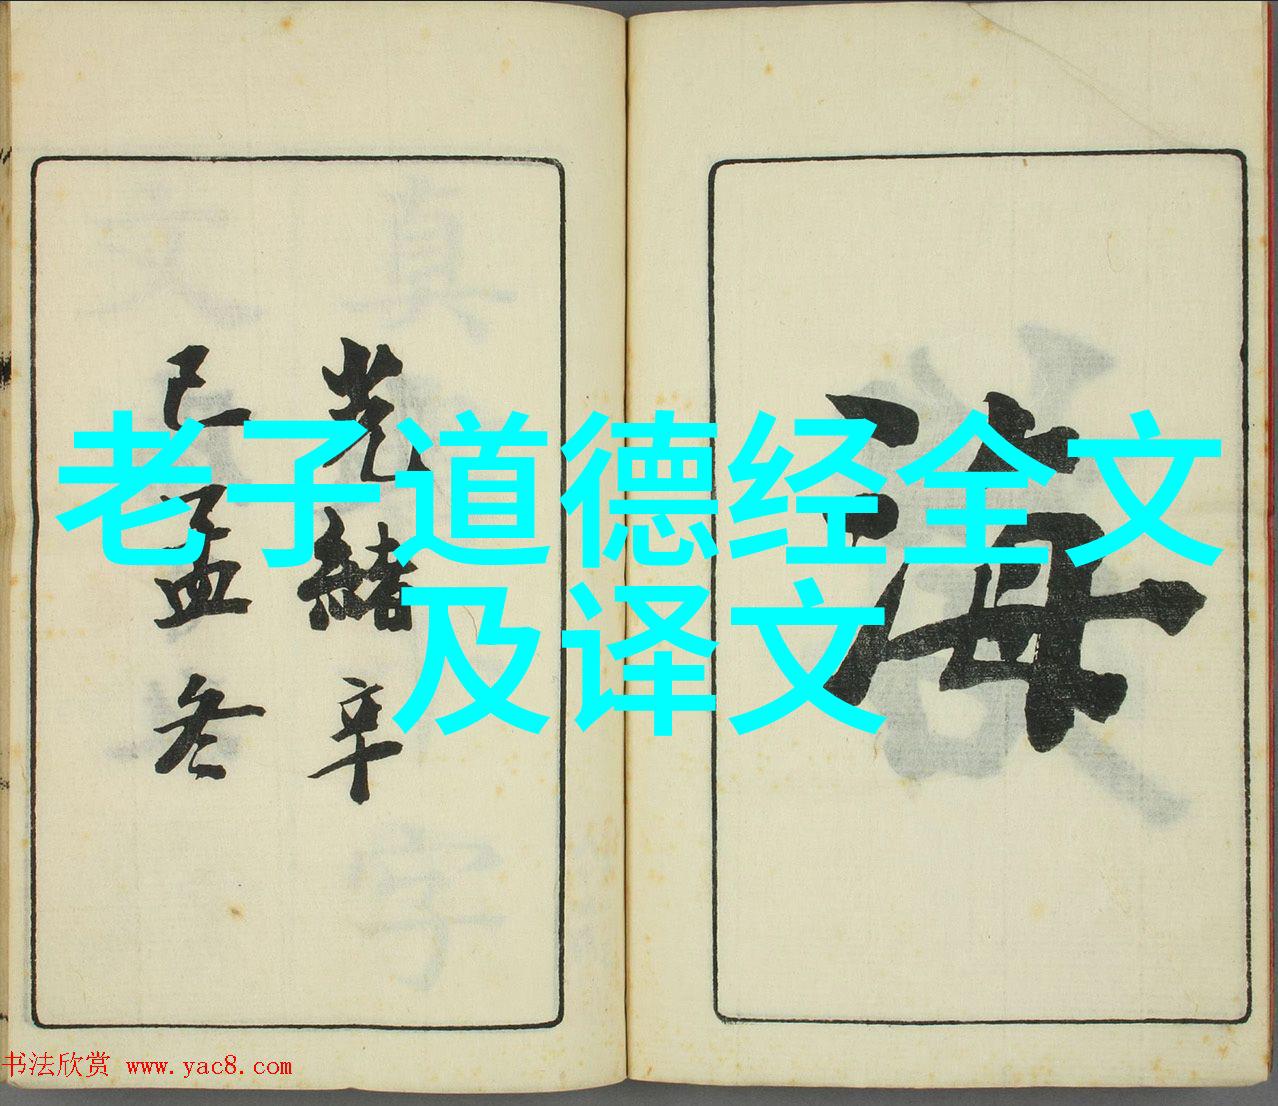 老子道德经全文
及译文
海
光緒辛
巳孟冬
书法欣赏 www.yac8.com